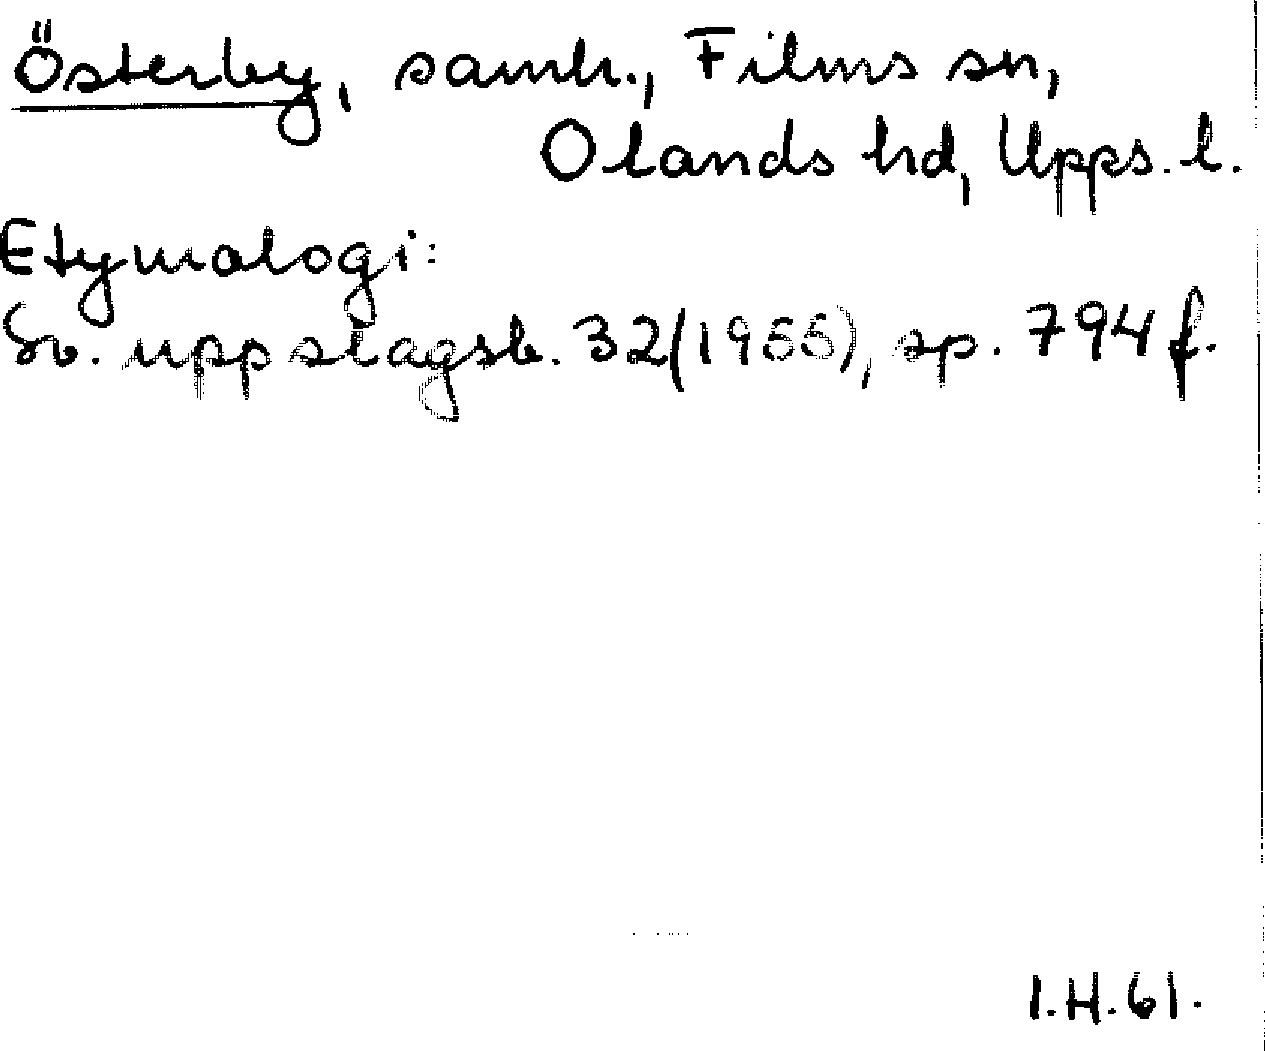 Österby, samh., Films sn,
Olands hd, Upps. l.
Etymologi:
Sv. uppslagsb. 32(1955), sp. 794 f.
I.H.61.